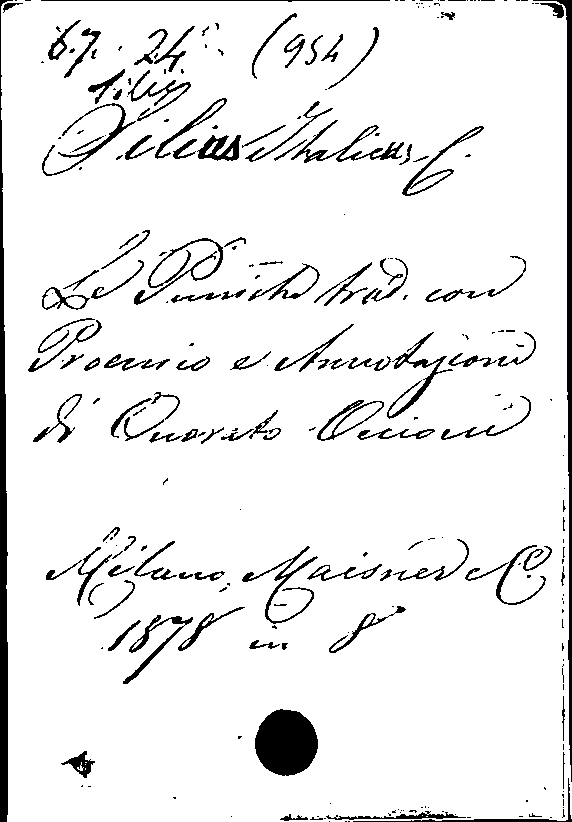 6.7. 24 (954)
Silius Italicus C.
Le Puniche trad. con
Proemio e Annotazioni
di Onorato Occioni
Milano, Maisner e C.
1878 in 8